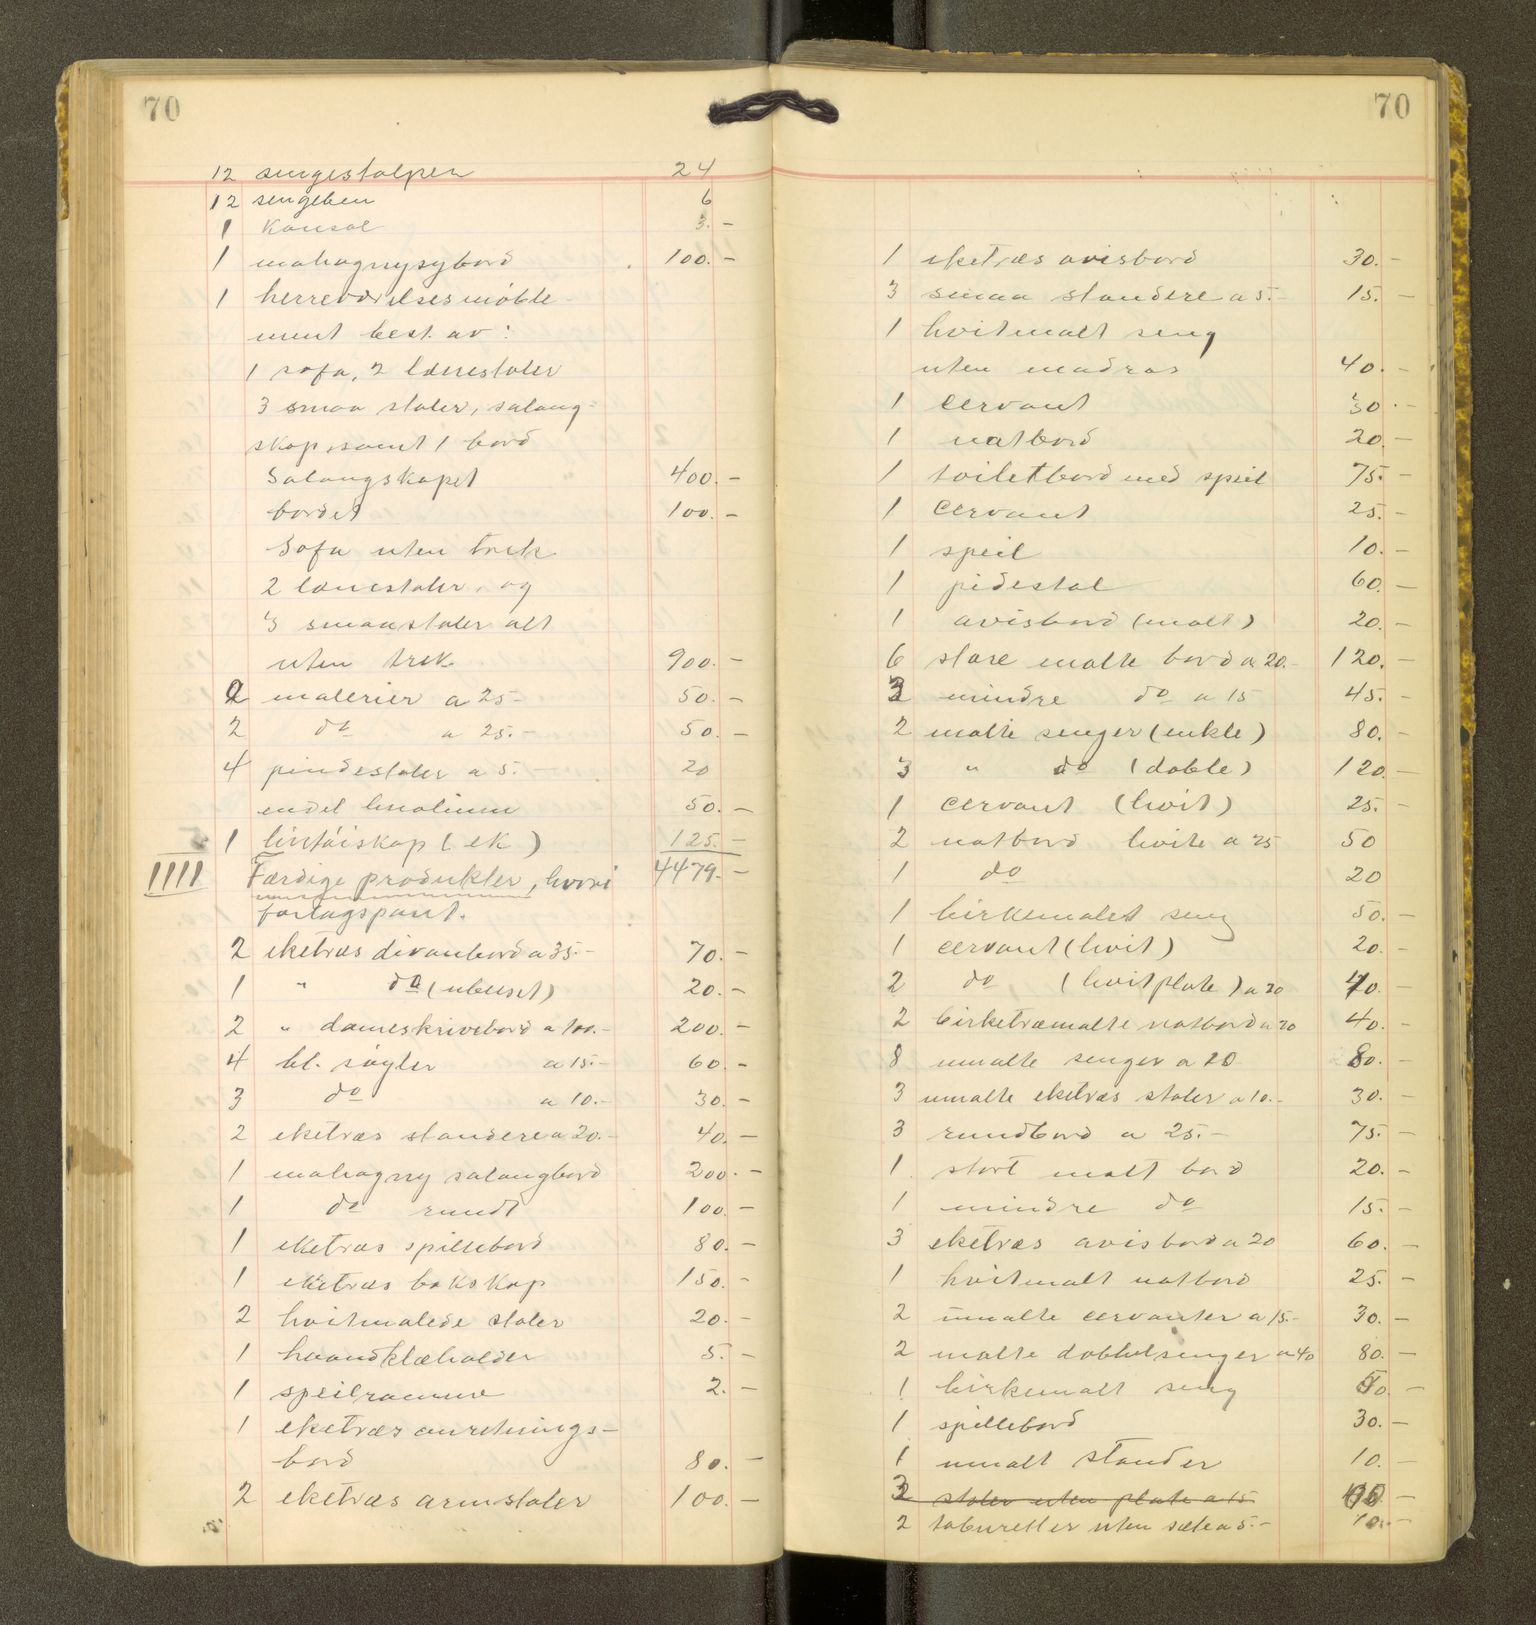 70
12 sengestolper 24
12 sengeben 6
1 Konsol 3.-
1 mahognysybord 100.-
1 herreværelsesmøble-
ment best. av:
1 sofa, 2 lænestoler
3 smaa stoler, salong-
skap, samt 1 bord
Salongskapet 400.-
bordet 100.-
Sofa uten træk
2 lænestoler, og
3 smaa stoler alt
uten træk 900.-
2 malerier a 25- 50.-
2 do a 25.- 50.-
4 pindestoler a 5.- 20
endel linolium 50.-
1 lintøiskap (ek) 125.-
IIII Færdige produkter, hvori 4479.-
forlagspant.
2 eketræs divanbord a 35.- 70.-
1 " do (ubeiset) 20.-
2 " dameskrivebord a 100.- 200.-
4 bl. søyler a 15.- 60.-
3 do a 10.- 30.-
2 eketræs standere a 20.- 40.-
1 mahogny salongbord 200.-
1 do rundt 100.-
1 eketræs spillebord 80.-
1 eketræs bokskap 150.-
2 hvitmalede stoler 20.-
1 haandklæholder 5.-
1 speilramme 2.-
1 eketræs anretnings-
bord 80.-
2 eketræs armstoler 100.-
70
1 eketræs avisbord 30.-
3 smaa standere a 5.- 15.-
1 hvitmalt seng
uten madras 40.-
1 cervant 30.-
1 natbord 20.-
1 toiletbord med speil 75.-
1 cervant 25.-
1 speil 10.-
1 pidestal 60.-
1 avisbord (malt) 20.-
6 store malte bord a 20.- 120.-
3 mindre do a 15 45.-
2 malte senger (enkle) 80.-
3 " do (doble) 120.-
1 cervant (hvit) 25.-
2 natbord hvite a 25 50
1 do 20
1 birkemalet seng 50.-
1 cervant (hvit) 20.-
2 do (hvit plate) a 20 40.-
2 birketræmalte natbord a 20 40.-
8 umalte senger a 10 80.-
3 umalte eketræs stoler a 10.- 30.-
3 rundbord a 25.- 75.-
1 stort malt bord 20.-
1 mindre do 15.-
3 eketræs avisbord a 20 60.-
1 hvitmalt natbord 25.-
2 umalte cervanter a 15.- 30.-
2 malte dobbelsenger a 40 80.-
1 birkemalt seng 50.-
1 spillebord 30.-
1 umalt stander 10.-
3 stoler uten plate a 15
2 taburetter uten sæte a 5.- 10.-